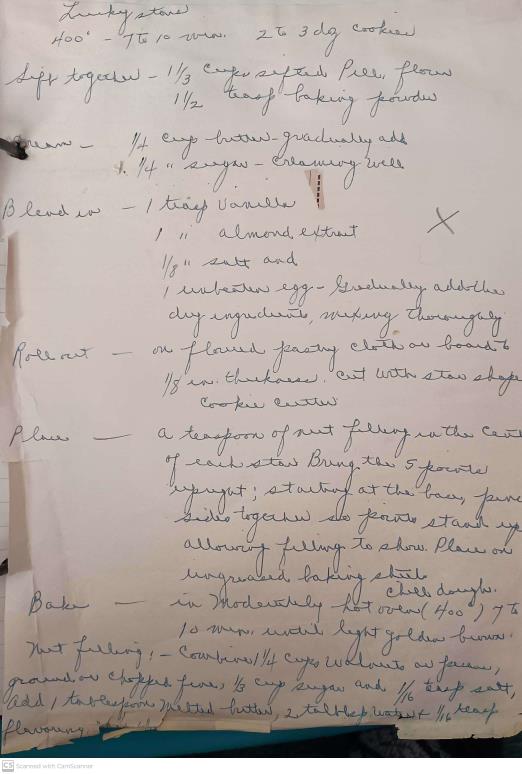 Lucky stars
400° - 7 to 10 min. 2 to 3 dz cookies
Sift together - 1 1/3 cups sifted Pill. flour
1 1/2 teasp baking powder
Cream - 1/4 cup butter - gradually add
1/4 " sugar - creaming well
Blend in - 1 teasp vanilla
1 " almond extract
1/8 " salt and
1 unbeaten egg - Gradually add the
dry ingredients, mixing thoroughly
Roll out - on floured pastry cloth or board to
1/8 in. thickness. cut with star shape
cookie cutter
Place - a teaspoon of nut filling in the cent
of each star Bring the 5 points
upright; starting at the base, pinc
sides together so points stand up
allowing filling to show. Place on
ungreased baking sheet.
Chill dough.
Bake - in Moderately hot oven (400°) 7 to
10 min. until light golden brown.
Nut filling: - Combine 1 1/4 cups walnuts or pecans,
ground or chopped fine, 1/3 cup sugar and 1/16 teasp salt,
add 1 tablespoon melted butter, 2 tablesp water + 1/16 teasp
flavoring
CS Scanned with CamScanner